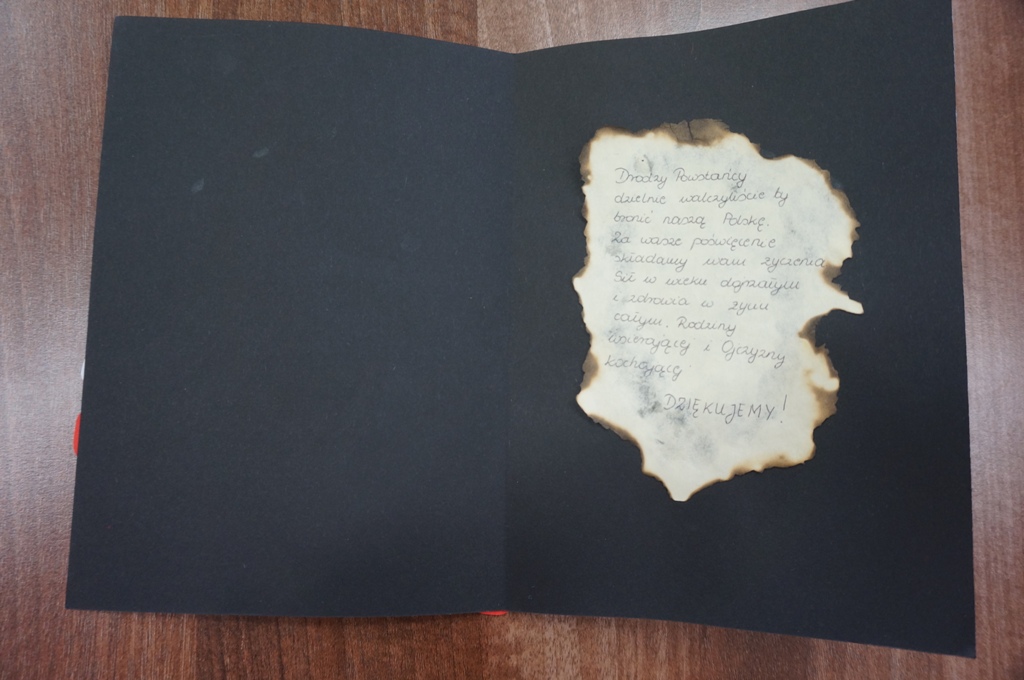 Drodzy Powstańcy
dzielnie walczyliście by
bronić naszą Polskę.
Za wasze poświęcenie
składamy wam życzenia
Sił w wieku dojrzałym
i zdrowia w życiu
całym. Rodziny
wspierającej i Ojczyzny
kochającej.
DZIĘKUJEMY!